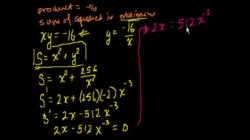 product = -16
sum of squares is minimum
xy = -16
y = -16/x
S = x² + y²
S = x² + 256/x²
S' = 2x + 256(-2)x⁻³
S' = 2x - 512x⁻³
2x - 512x⁻³ = 0
2x = 512x⁻³